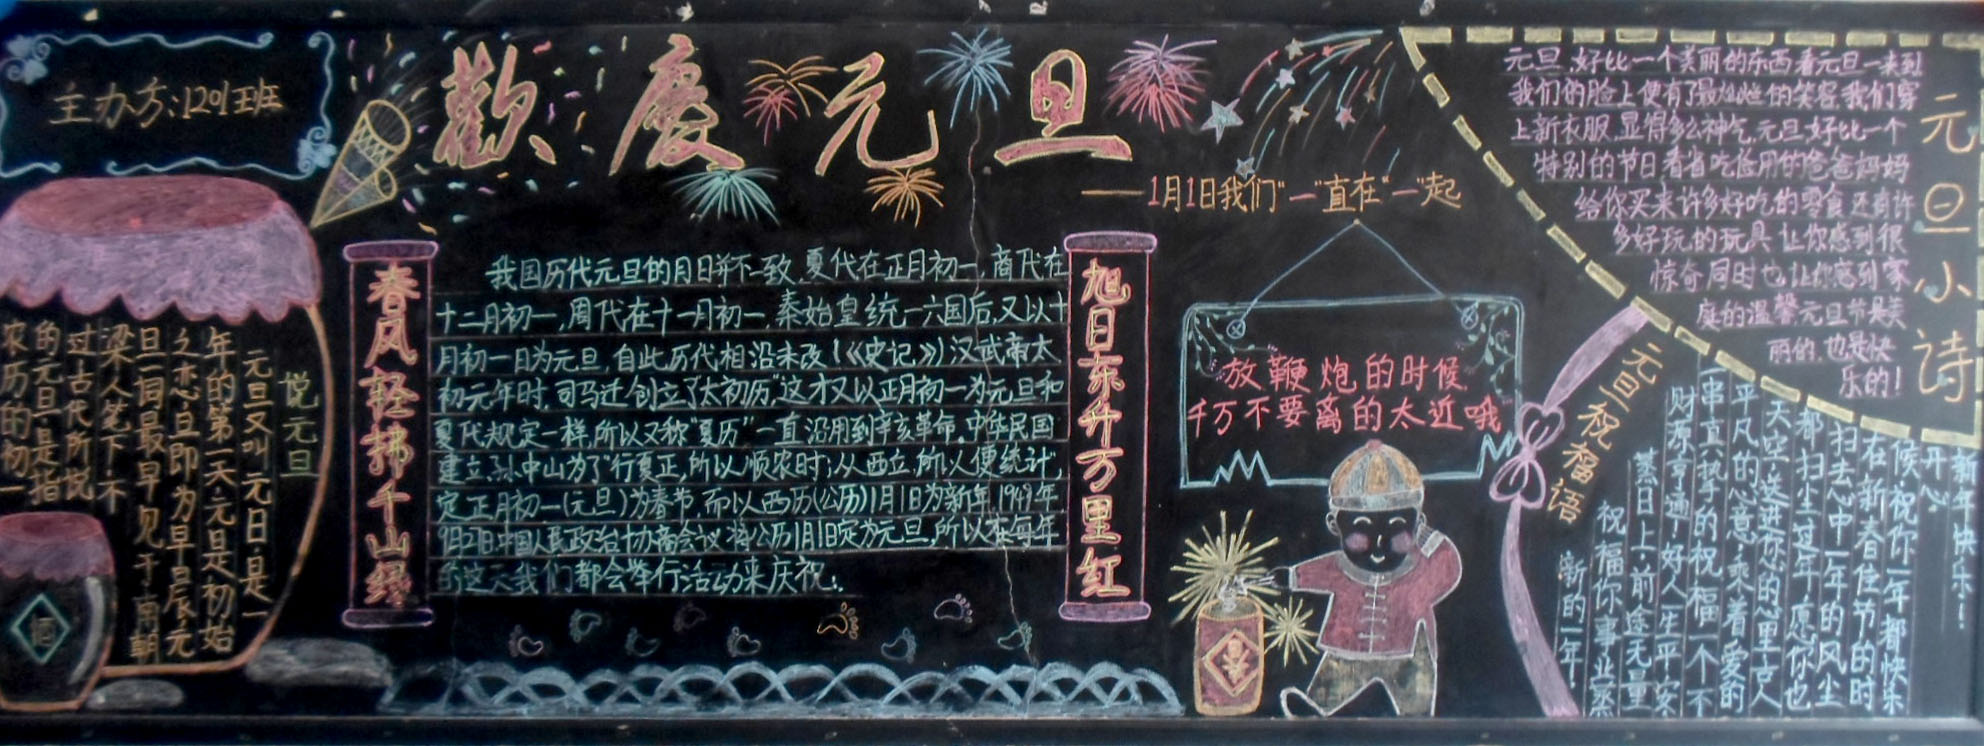 主办方:1201班
歡慶元旦
——1月1日我们"一"直在"一"起
悦元旦
元旦又叫元日·是一
年的第一天·元是初始
之态旦即为早晨元
旦一词最早见于南朝
梁人笔下·不
过古代所悦
的元旦是指
农历的初一
酒
春风轻拂千山绿
我国历代元旦的月日并不一致,夏代在正月初一,商代在
十二月初一,周代在十一月初一,秦始皇统一六国后,又以十
月初一日为元旦,自此历代相沿未改(《史记》)汉武帝太
初元年时,司马迁创立了"太初历"这才又以正月初一为元旦和
夏代规定一样,所以又称"夏历"一直沿用到辛亥革命。中华民国
建立,孙中山为了"行夏正,所以顺农时;从西立,所以便统计"
定正月初一(元旦)为春节,而以西历(公历)1月1日为新年,1949年
9月21日,中国人民政治协商会议将公历1月1日定为元旦,所以在每年
的这一天我们都会举行活动来庆祝!
旭日东升万里红
放鞭炮的时候,
千万不要离的太近哦
元旦小诗
元旦,好比一个美丽的东西看元旦一来到
我们的脸上便有了最灿烂的笑容我们穿
上新衣服,显得多么神气,元旦好比一个
特别的节日看省吃俭用的爸爸妈妈
给你买来许多好吃的零食还有许
多好玩的玩具让你感到很
惊奇同时也让你感到家
庭的温馨元旦节是美
丽的,也是快
乐的!
元旦祝福语
新年快乐!
开心
候·祝你一年都快乐
右新春佳节的时
扫去心中一年的风尘
都扫尘这年愿你也
天空·送进你的窗里古人
平凡的心意·乘着爱的
一串真挚的祝福一个不
财源亨通·好人一生平安
蒸日上·前途无量
祝福你事业蒸
新的一年!